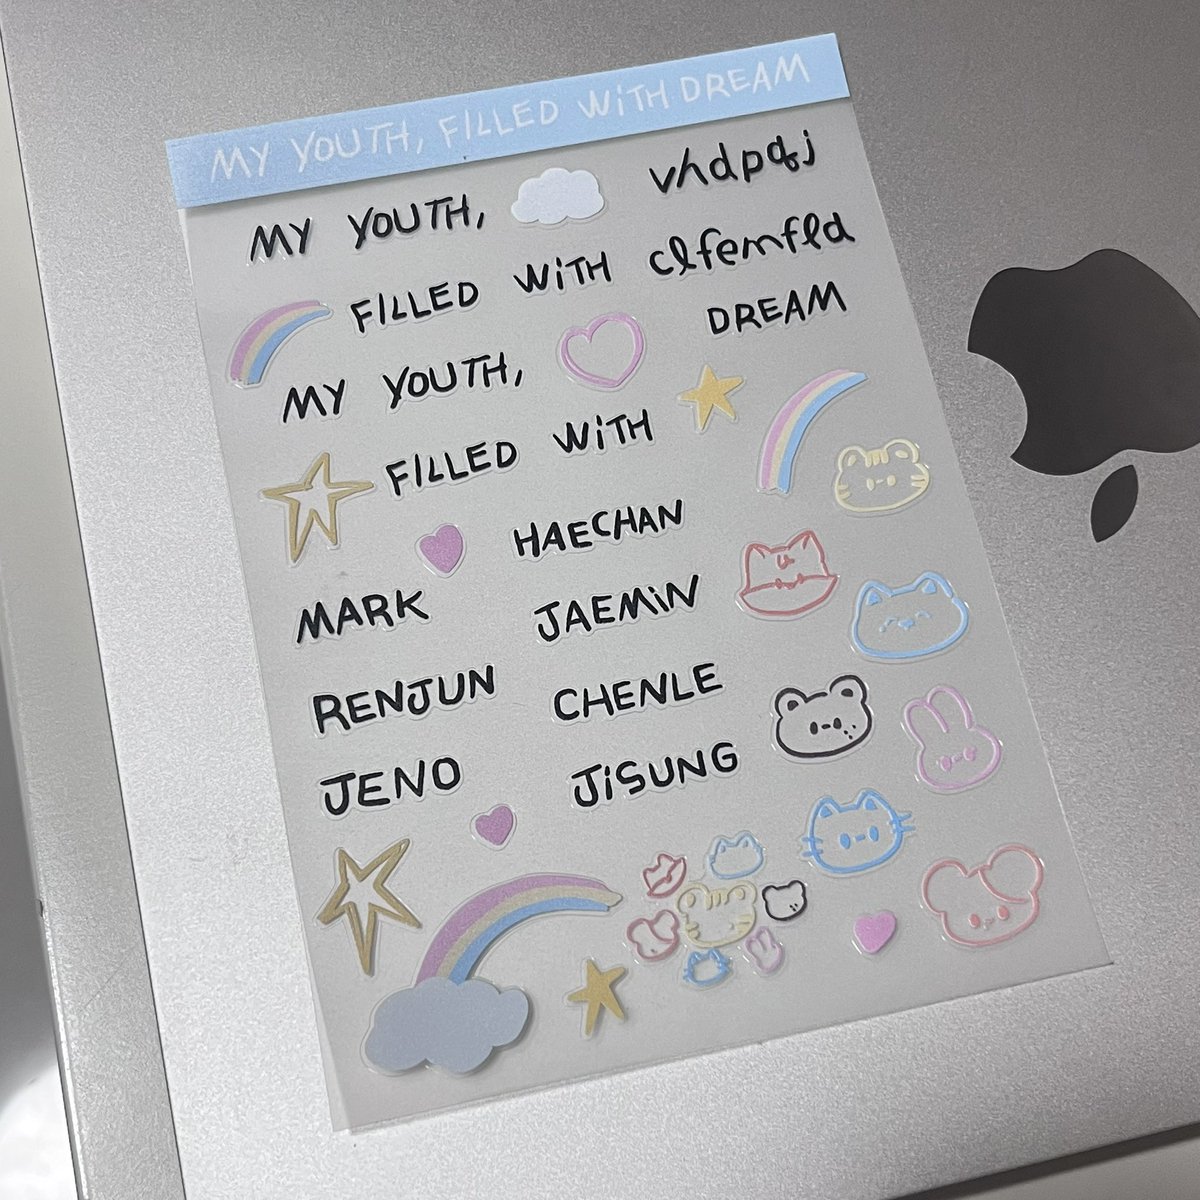 MY YOUTH, FILLED WiTH DREAM
MY YOUTH, vhdpqj
FILLED WiTH clfemfld
MY YOUTH, DREAM
FILLED WiTH
HAECHAN
MARK JAEMiN
RENJUN CHENLE
JENO JiSUNG